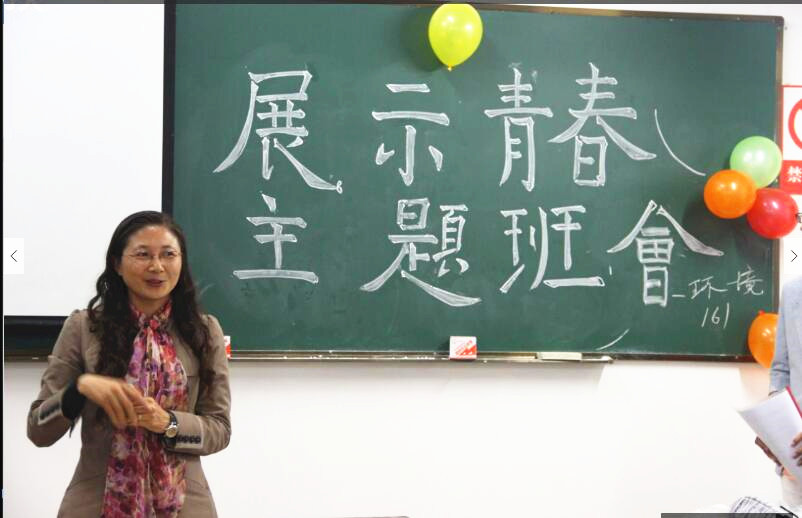 展示青春
主題班會
-环境
161
禁